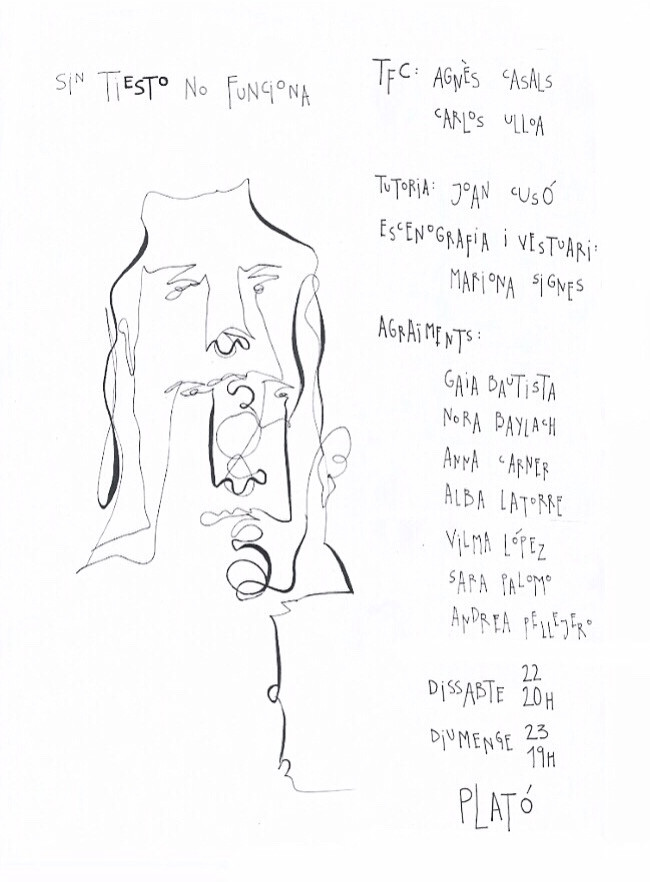 SiN TiESTO NO FUNCiONA
TFC: AGNÈS CASALS
CARLOS ULLOA
TUTORiA: JOAN CUSÓ
ESCENOGRAFiA i VESTUARi:
MARiONA SiGNES
AGRAÏMENTS:
GAiA BAUTiSTA
NORA BAYLACH
ANNA CARNER
ALBA LATORRE
ViLMA LÓPEZ
SARA PALOMO
ANDREA PELLEJERO
DiSSABTE 22
20H
DiUMENGE 23
19H
PLATÓ